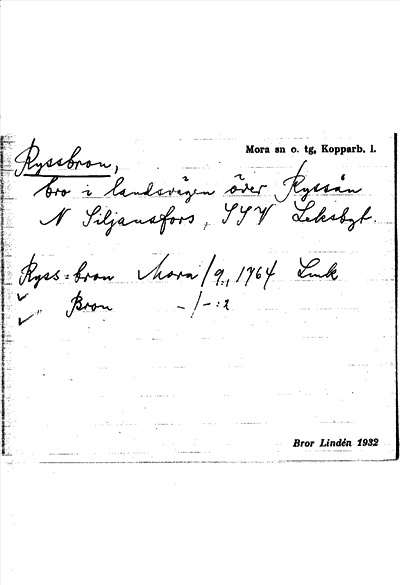 Mora sn o. tg, Kopparb. l.
Ryssbron,
bro i landsvägen över Ryssån
N Siljansfors, SSV Leksbyt.
Ryss-bron Mora / 9:1, 1764 Lmk
" Bron - / - : 2
Bror Lindén 1932